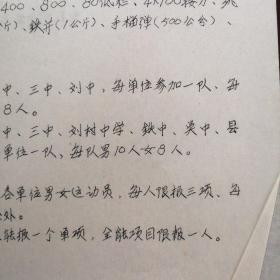 400、800、80低栏、4×100接力、跳
斤)、铁并(1公斤)、手榴弹(500公分)、
中、三中、刘中,每单位参加一队、每
8人。
中、三中、刘村中学、铁中、吴中、县
单位一队、每队男10人女8人。
各单位男女运动员,每人限报三项、每
处。
限报一个单项,全能项目限报一人。